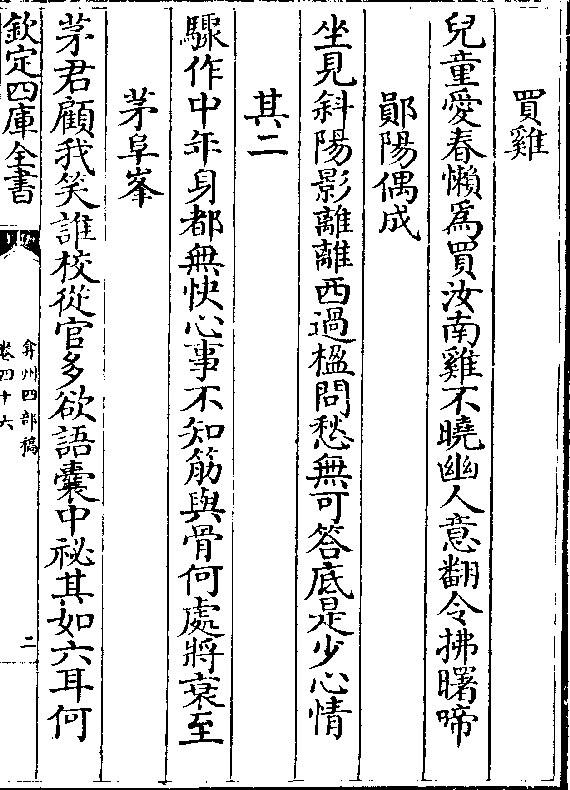 買雞
兒童愛春懶爲買汝南雞不曉幽人意翻令拂曙啼
鄖陽偶成
坐見斜陽影離離西過楹問愁無可答底是少心情
其二
驟作中年身都無快心事不知筋與骨何處將衰至
茅阜峯
茅君顧我笑誰校從官多欲語囊中祕其如六耳何
欽定四庫全書
弇州四部稿
卷四十六
二